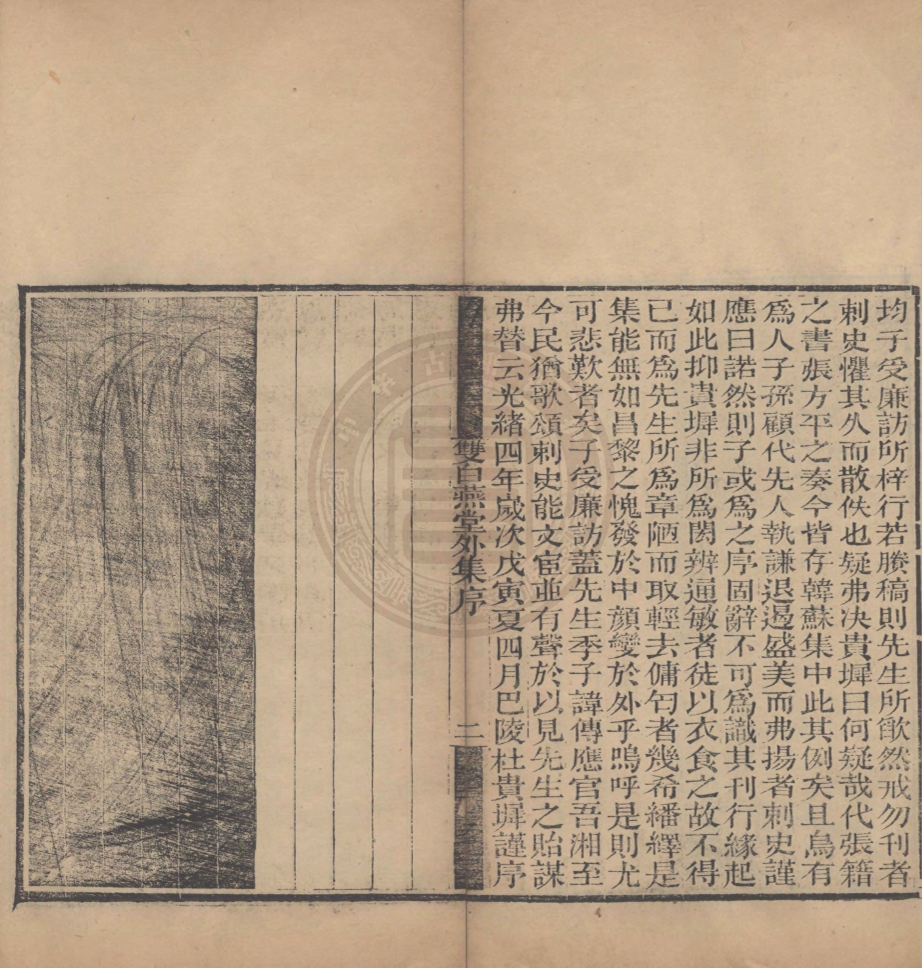 均子受廉訪所梓行若賸稿則先生所歉然戒勿刊者
刺史懼其久而散佚也疑弗決貴墀曰何疑哉代張籍
之書張方平之奏今皆存韓蘇集中此其例矣且烏有
爲人子孫顧代先人執謙退遏盛美而弗揚者刺史謹
應曰諾然則子或爲之序固辭不可爲識其刊行緣起
如此抑貴墀非所爲閎辨逼敏者徒以衣食之故不得
已而爲先生所爲章陋而取輕去傭匄者幾希繙繹是
集能無如昌黎之愧發於中顏變於外乎嗚呼是則尤
可悲歎者矣子受廉訪蓋先生季子諱傳應官吾湘至
今民猶歌頌刺史能文宦並有聲於以見先生之貽謀
弗替云光緒四年歲次戊寅夏四月巴陵杜貴墀謹序
雙白燕堂外集序
二